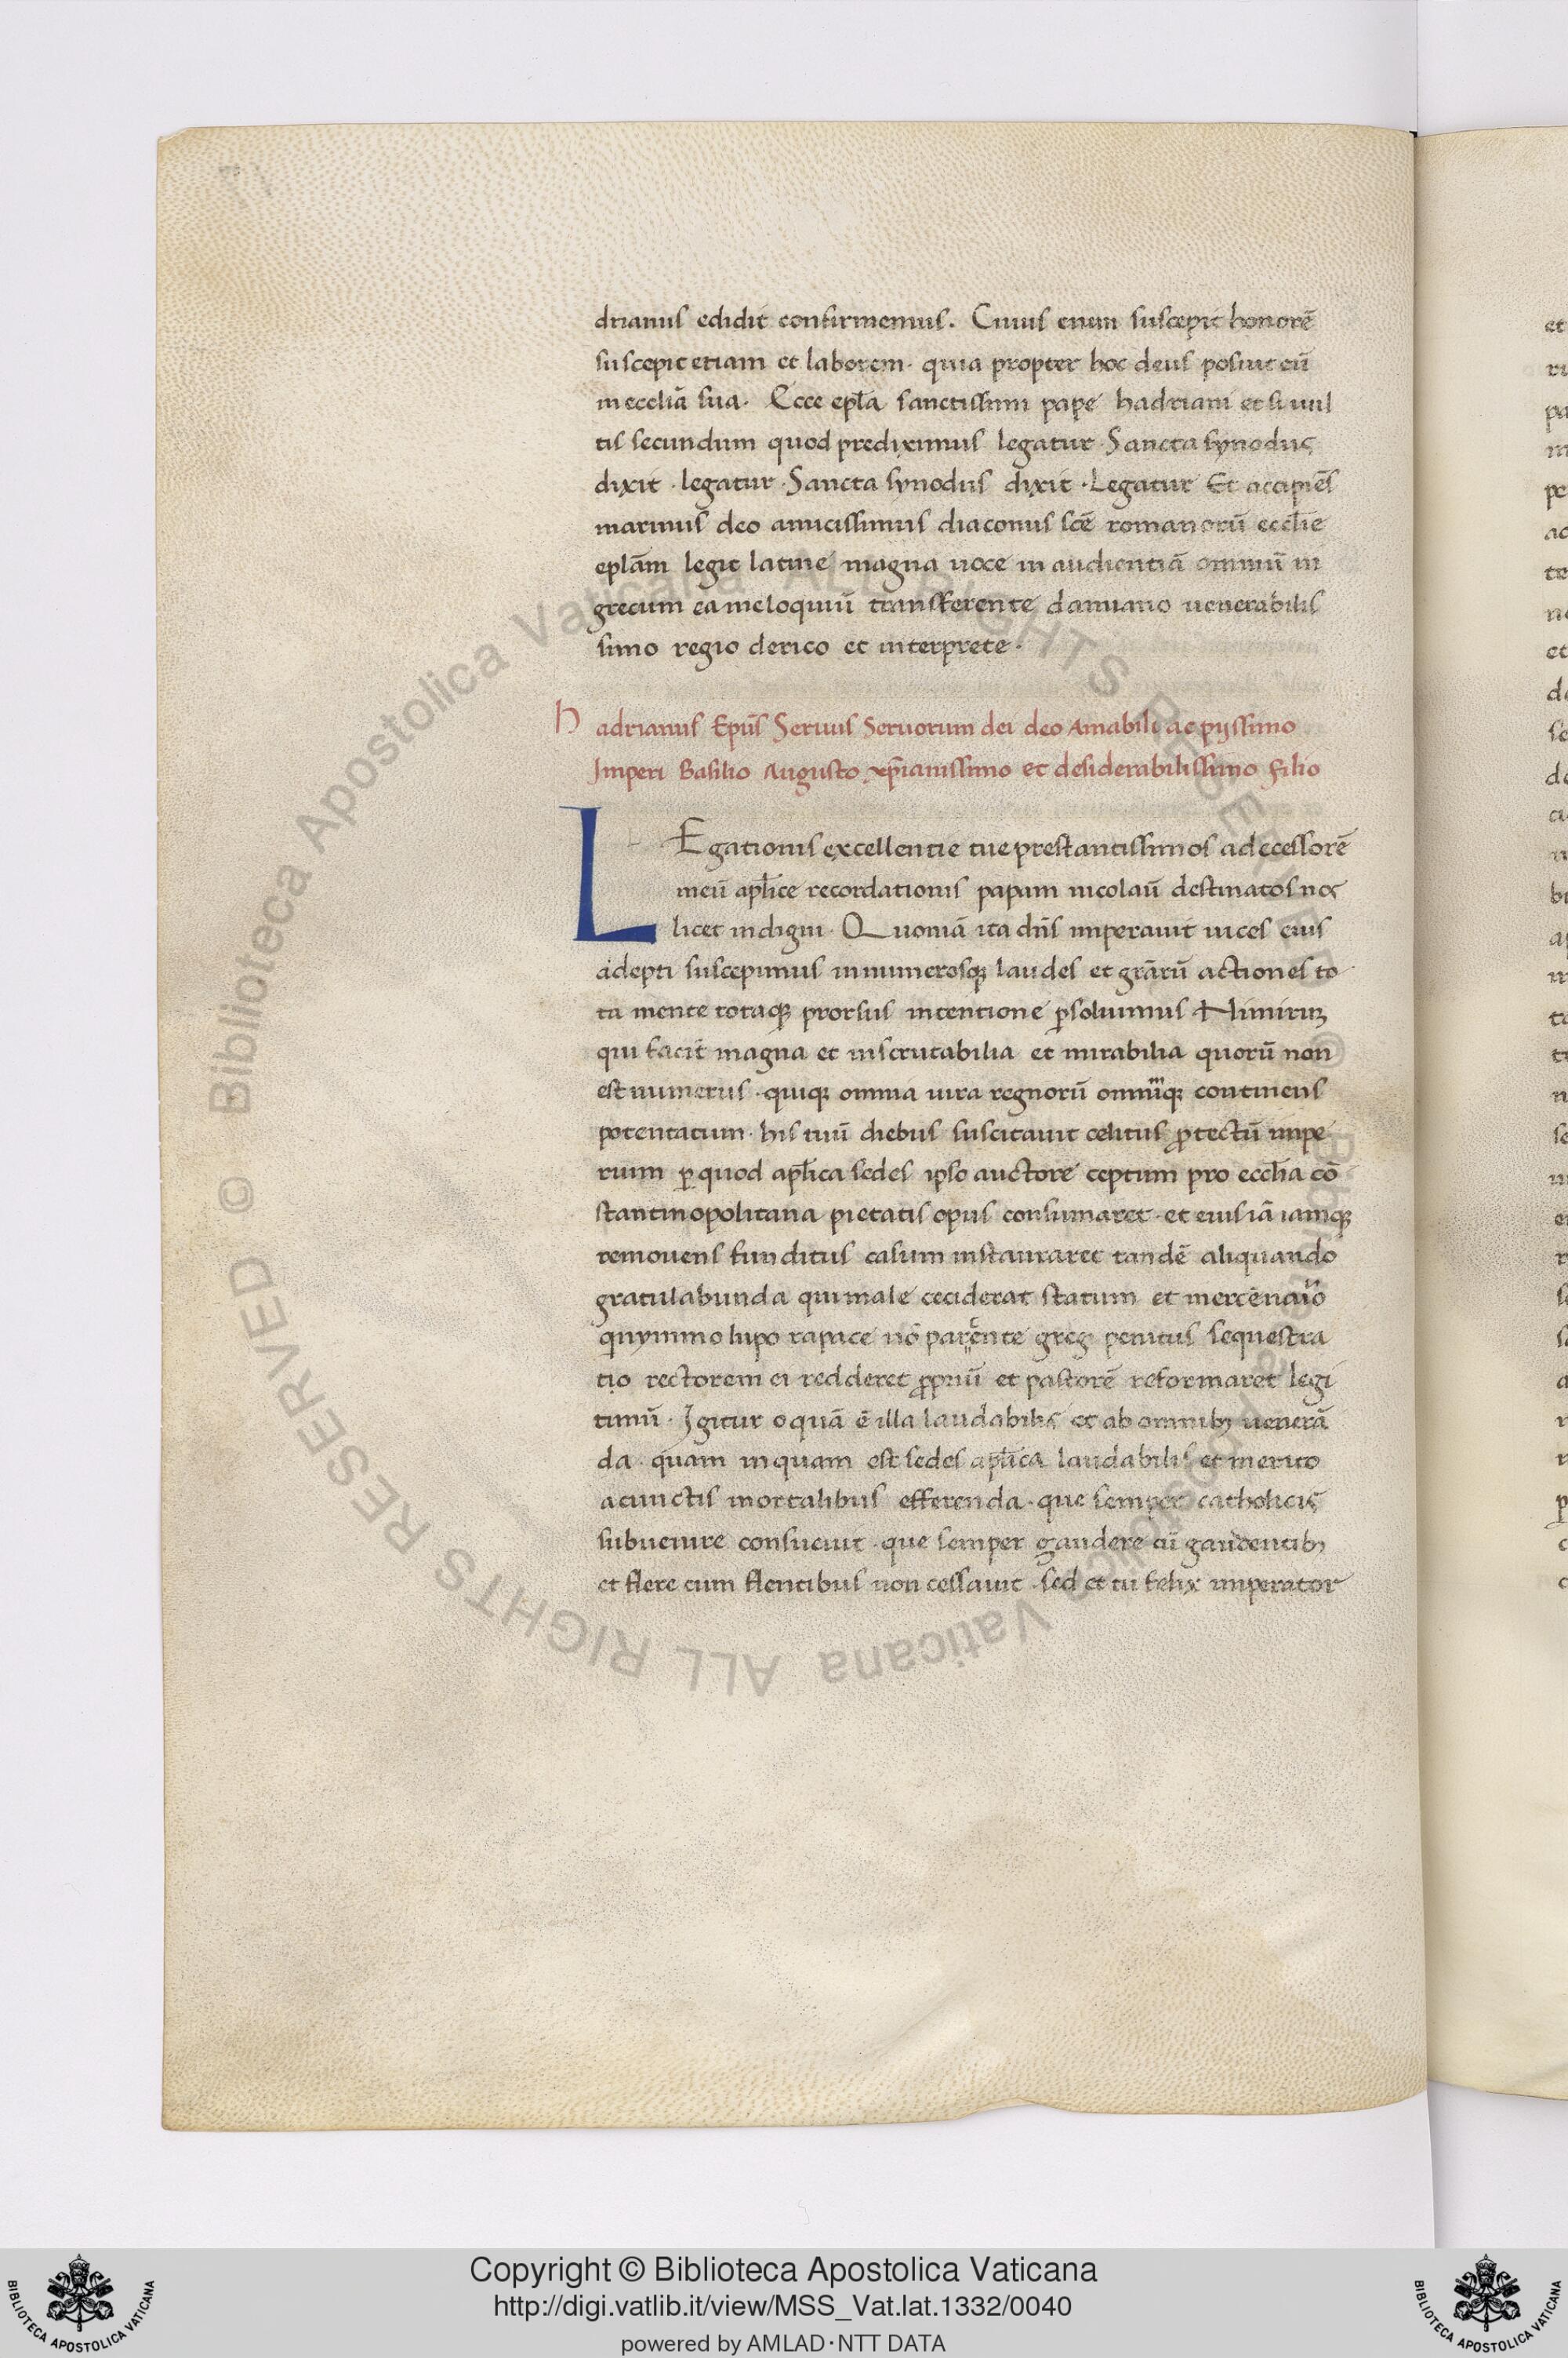 drianus edidit confirmemus. Cuius enim suscepit honorē
suscepit etiam et laborem· quia propter hoc deus posuit eū
in eccliā sua· Ecce epl̄a sanctissimi pape hadriani et si uul
tis secundum quod prediximus legatur· Sancta synodus
dixit · legatur · Sancta synodus dixit · Legatur Et accipiēs
marinus deo amicissimus diaconus scē romanorū eccl̄ie
eplām legit latine magna uoce in audientiā omniū in
grecum ea meloquiū transferente damiano uenerabilis
simo regio clerico et interprete·
Hadrianus Epūs Seruus Seruorum dei deo Amabili ac pijssimo
Imperi Basilio Augusto xp̄ianissimo et desiderabilissimo filio
LEgationis excellentie tue prestantissimos adecessorē
meū apl̄ice recordationis papam nicolaū destinatos nos
licet indigni· Quoniā ita dn̄s imperauit uices eius
adepti suscepimus innumerosq; laudes et grārū actiones to
ta mente totaq; prorsus intentione ꝑsoluimus Nimirum
qui facit magna et inscrutabilia et mirabilia quorū non
est numerus · quiq; omnia iura regnorū omniūq; continens
potentatum· his niū diebus suscitauit celitus ꝓtectū impe
rium ꝑ quod apl̄ica sedes ipso auctore ceptum pro eccl̄ia cō
stantinopolitana pietatis opus consumaret · et eius iā iamq;
remouens funditus casum instauraret tandē aliquando
gratulabunda qui male ceciderat statum et mercēnario
qnymmo lupo rapace nō parcente greg penitus sequestra
tio rectorem ei redderet ꝓpriū et pastorē reformaret legi
timū· Igitur o quā ē illa laudabilis et ab omnib; uenerā
da· quam inquam est sedes apl̄ica laudabilis et merito
acunctis mortalibus efferenda · que semper catholicis
subuenire consueuit · que semper gaudere cū gaudentib;
et flere cum flentibus non cessauit · sed et tu felix imperator
Copyright © Biblioteca Apostolica Vaticana
http://digi.vatlib.it/view/MSS_Vat.lat.1332/0040
powered by AMLAD·NTT DATA